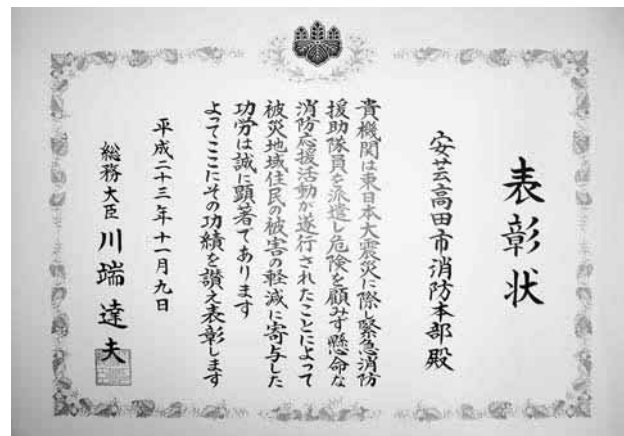 表彰状
安芸高田市消防本部殿
貴機関は東日本大震災に際し緊急消防
援助隊員を派遣し危険を顧みず懸命な
消防応援活動が遂行されたことによって
被災地域住民の被害の軽減に寄与した
功労は誠に顕著であります
よってここにその功績を讃え表彰します
平成二十三年十一月九日
総務大臣 川端達夫